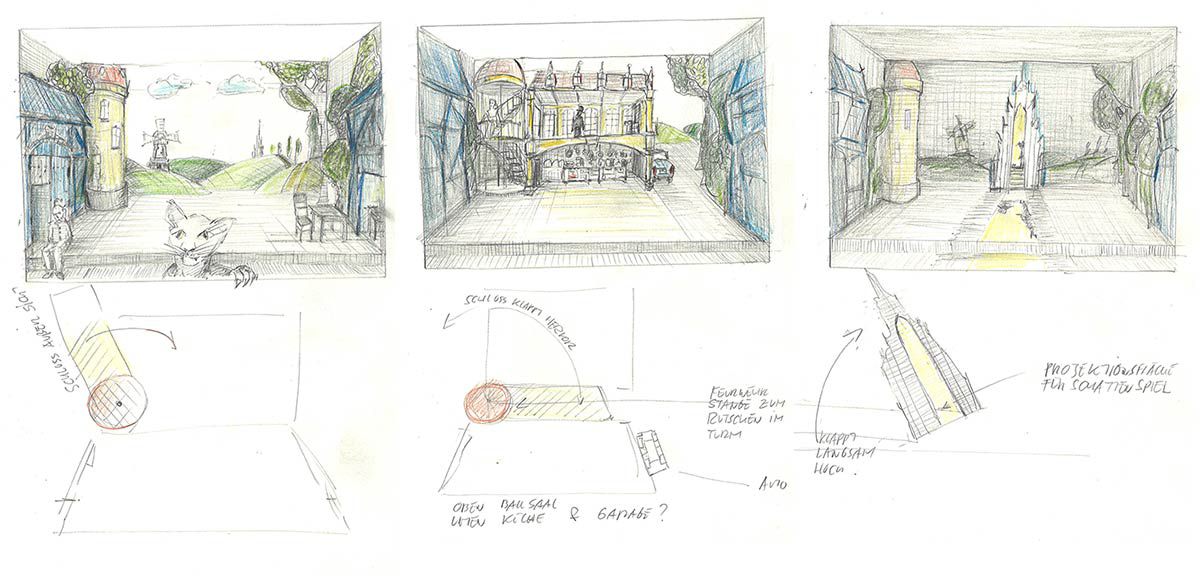 SCHLOSS AUßEN SICHT
SCHLOSS KLAPPT HERVOR
FEUERWEHR
STANGE ZUM
RUTSCHEN IM
TURM
AUTO
OBEN BALLSAAL
UNTEN KÜCHE & GARAGE?
KLAPPT
LANGSAM
HOCH.
PROJEKTIONSFLÄCHE
FÜR SCHATTENSPIEL